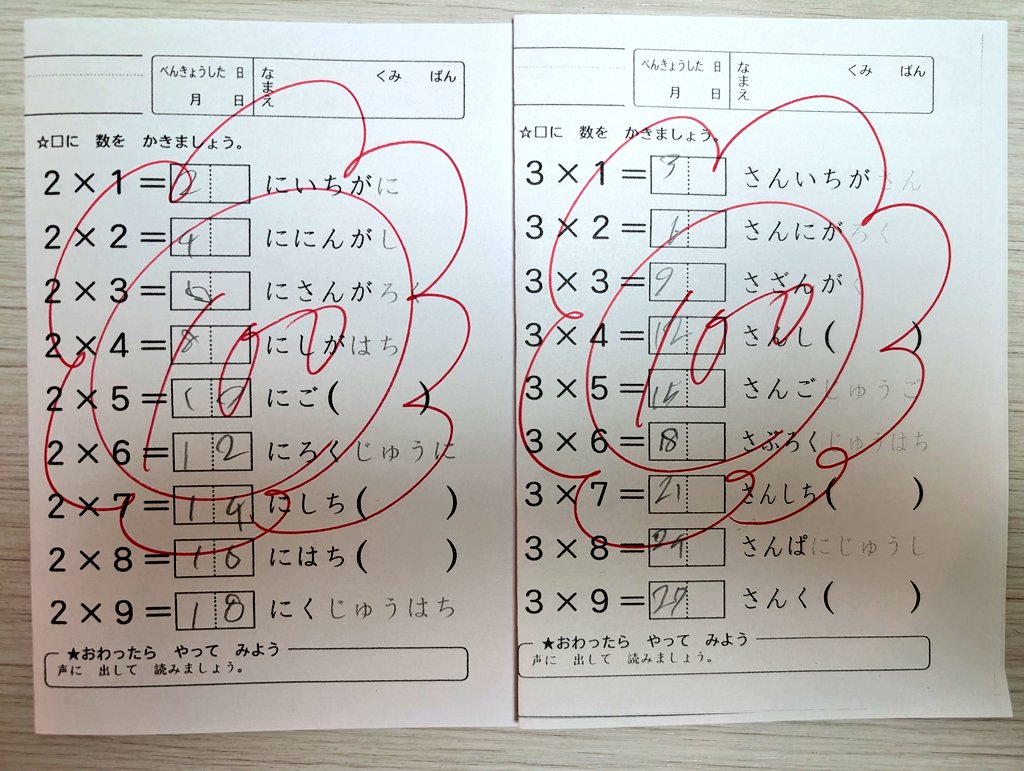 べんきょうした 日
月 日
なまえ
くみ ばん
☆□に 数を かきましょう。
2×1=2 にいちがに
2×2=4 ににんがし
2×3=6 にさんがろく
2×4=8 にしがはち
2×5=10 にご( )
2×6=12 にろくじゅうに
2×7=14 にしち( )
2×8=16 にはち( )
2×9=18 にくじゅうはち
★おわったら やって みよう
声に 出して 読みましょう。
100
べんきょうした 日
月 日
なまえ
くみ ばん
☆□に 数を かきましょう。
3×1=3 さんいちがさん
3×2=6 さんにがろく
3×3=9 さざんがく
3×4=12 さんし( )
3×5=15 さんごじゅうご
3×6=18 さぶろくじゅうはち
3×7=21 さんしち( )
3×8=24 さんぱにじゅうし
3×9=27 さんく( )
★おわったら やって みよう
声に 出して 読みましょう。
100